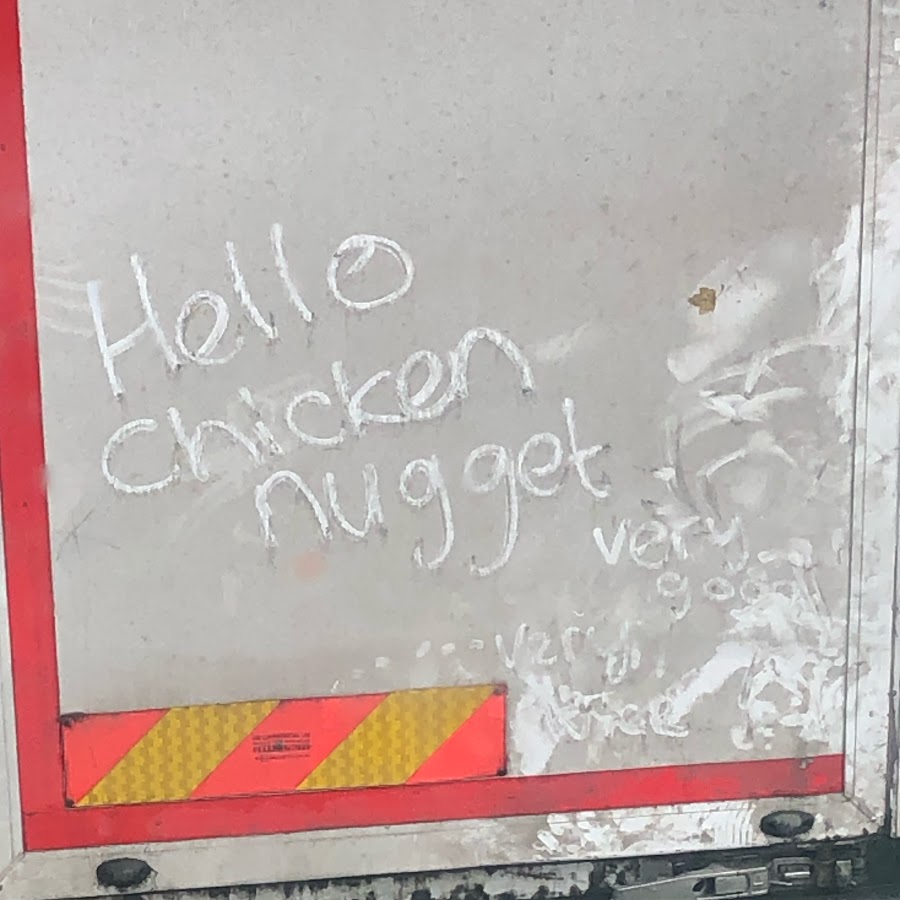 Hello
chicken
nugget
very
good
very
nice